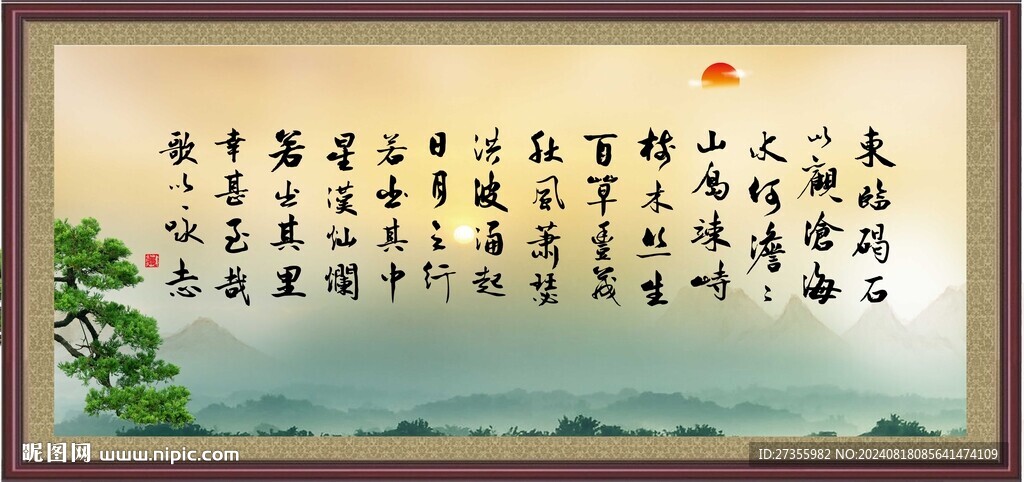 東臨碣石
以觀滄海
水何澹々
山島竦峙
树木丛生
百草豐茂
秋風蕭瑟
洪波涌起
日月之行
若出其中
星漢灿爛
若出其里
幸甚至哉
歌以咏志
昵图网 www.nipic.com
ID:27355982 NO:20240818085641474109